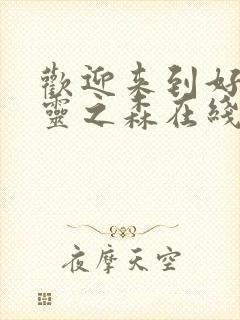 歡迎来到好
靈之森在綫
夜摩天空